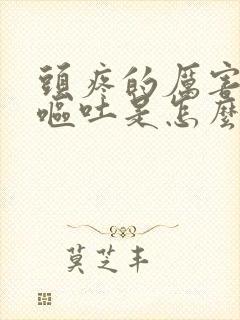 頭疼的厲害
嘔吐是怎麼
莫芝丰